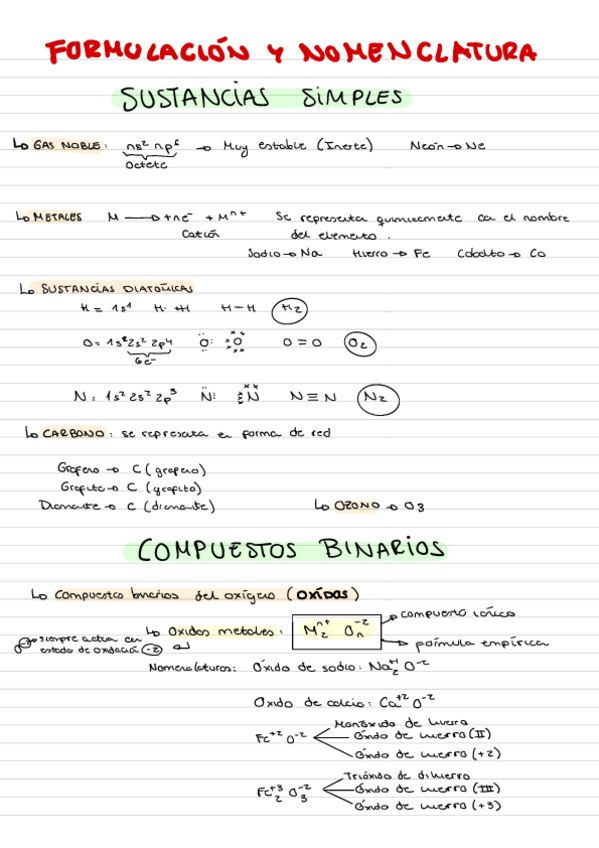 FORMULACIÓN Y NOMENCLATURA
SUSTANCIAS SIMPLES
↳ GAS NOBLE: ns² np⁶ → Muy estable (Inerte) Neón → Ne
Octete
↳ METALES M → + ne⁻ + Mⁿ⁺ Se representa químicamente con el nombre
Catión del elemento.
Sodio → Na Hierro → Fe Cobalto → Co
↳ SUSTANCIAS DIATÓMICAS
H = 1s¹ H· ·H H-H H₂
O = 1s² 2s² 2p⁴ O O O = O O₂
6e⁻
N: 1s² 2s² 2p³ N N N ≡ N N₂
↳ CARBONO: se representa en forma de red
Grafeno → C (grafeno)
Grafito → C (grafito)
Diamante → C (diamante) ↳ OZONO → O₃
COMPUESTOS BINARIOS
↳ Compuestos binarios del oxígeno (OXIDOS)
↳ Oxidos metales: M₂ⁿ⁺ Oₙ⁻² → compuesto iónico
→ siempre actua en
estado de oxidación (-2) → fórmula empírica
Nomenclaturas: Óxido de sodio: Na₂⁺¹ O⁻²
Oxido de calcio: Ca⁺² O⁻²
Fe⁺² O⁻² Monóxido de hierro
óxido de hierro (II)
óxido de hierro (+2)
Fe₂⁺³ O₃⁻² Trióxido de dihierro
óxido de hierro (III)
óxido de hierro (+3)